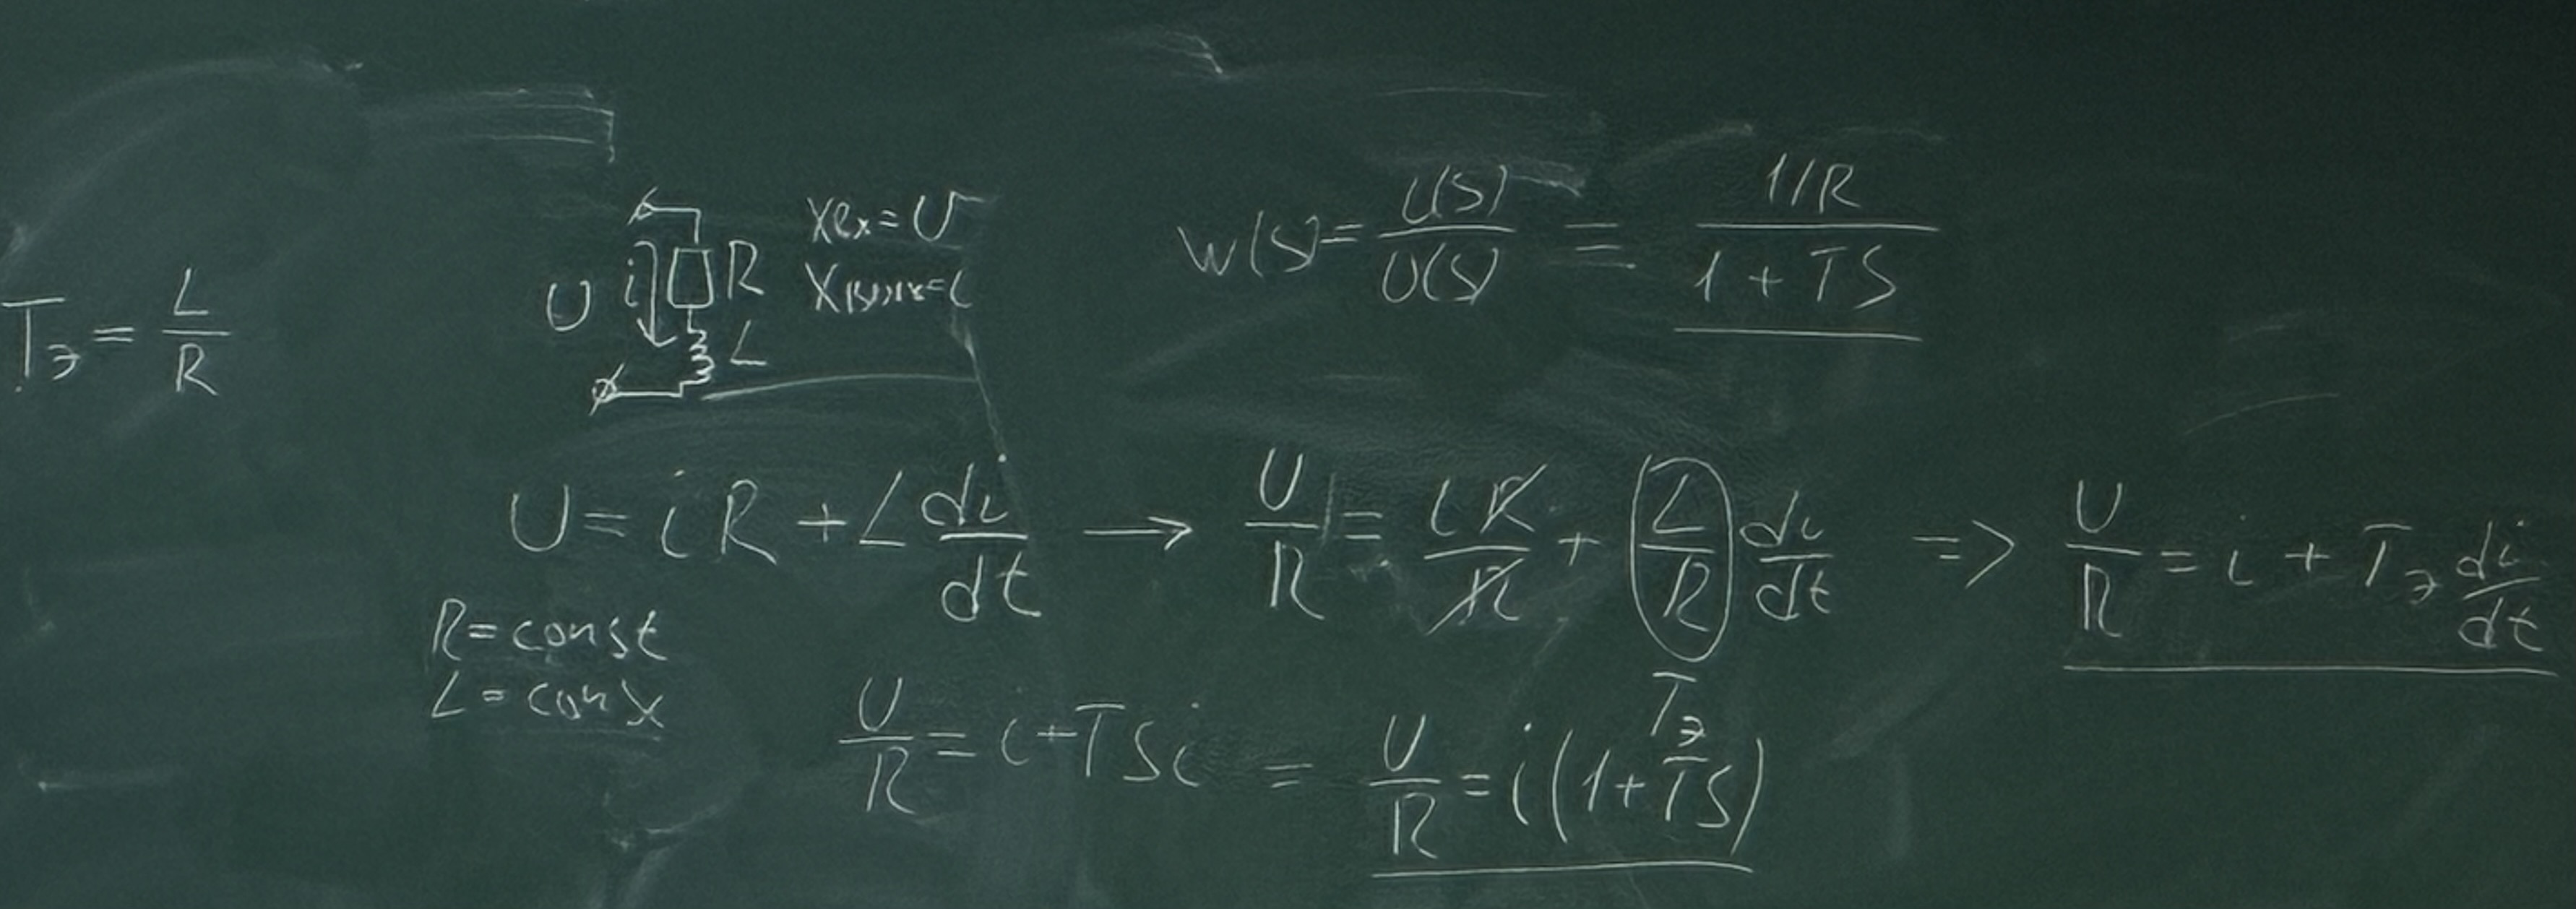 Tэ = L/R
U i R L
Xвх = U
Xвых = i
W(s) = i(s)/U(s) = (1/R)/(1 + TS)
U = iR + L di/dt → U/R = iR/R + L/R di/dt => U/R = i + Tэ di/dt
R = const
L = const
Tэ
U/R = i + TSi = U/R = i(1 + TS)